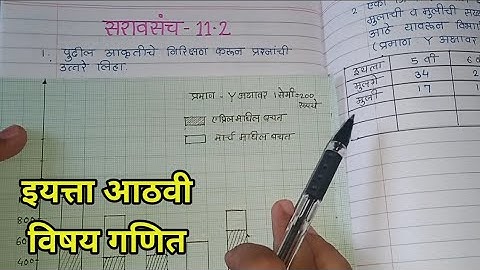 सरावसंच - 11.2
1. पुढील आकृतीचे निरिक्षण करून प्रश्नांची
उत्तरे लिहा.
प्रमाण - Y अक्षावर 1 सेमी = 200
रूपये
एप्रिल मधिल बचत
मार्च मधिल बचत
800
600
400
2 एका
मुलांची व मुलींची
आहे यावरून
(प्रमाण Y अक्षावर
इयत्ता 5 वी 6
मुलगे 34 2
मुली 17 1
इयत्ता आठवी
विषय गणित